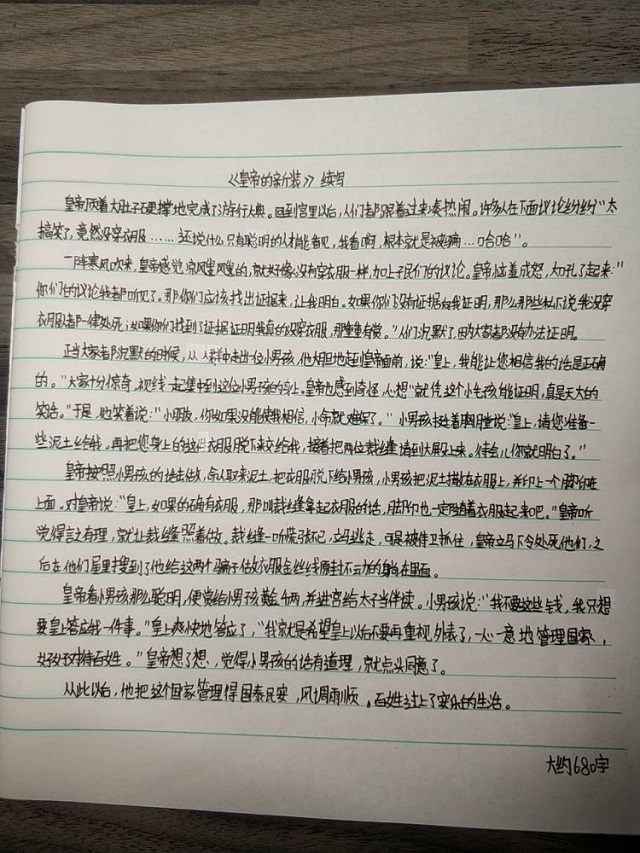 《皇帝的新装》续写
皇帝顶着大肚子硬撑地完成了游行大典。回到宫里以后，人们都跟着过来凑热闹。许多人在下面议论纷纷"太
搞笑了，竟然没穿衣服……还说什么只有聪明的人才能看见，我看啊，根本就是被骗…哈哈"。
一阵寒风吹来，皇帝感觉凉风嗖嗖的，就好像没有穿衣服一样，加上子民们的议论。皇帝恼羞成怒，大吼了起来："
你们的议论我都听见了。那你们应该找出证据来，让我明白。如果你们没有证据向我证明，那么那些私下说我没穿
衣服者都一律处死；如果你们找到了证据证明我真的没穿衣服，那重重有赏。"人们沉默了，因为大家都没有办法证明。
正当大家都沉默的时候，从人群中走出一位小男孩，他大胆地走到皇帝面前，说："皇上，我能让您相信我的话是正确
的。"大家十分惊奇，视线一起集中到这位小男孩的身上。皇帝也感到奇怪，心想"就凭这个小毛孩有能证明，真是天大的
笑话。"于是，她笑着说："小朋友，你如果没能使我相信，小命就难保了。"小男孩拍着胸膛说："皇上，请您准备一
些泥土给我。再把您身上的这件衣服脱下来交给我，接着把两位裁缝请到大殿上来。待会儿你就明白了。"
皇帝按照小男孩的话去做，命人取来泥土，把衣服脱下给男孩，小男孩把泥土撒在衣服上，并印上一个脚印在
上面。对皇帝说："皇上，如果的确有衣服，那叫裁缝拿起衣服的话，脚印也一定随着衣服起来吧。"皇帝听
觉得言之有理，就让裁缝照着做。裁缝一听慌张不已，立马逃走，可是被侍卫抓住，皇帝立马下令处死他们，之
后在他们屋里搜到了他给这两个骗子做衣服金丝线原封不动的躺在里面。
皇帝看小男孩那么聪明，便赏给男孩黄金万两，并进宫给太子当伴读。小男孩说："我不要这些钱，我只想
要皇上答应我一件事。"皇上爽快地答应了，"我就是希望皇上以后不要再重视外表了，一心一意地管理国家，
好好对待百姓。"皇帝想了想，觉得小男孩的话有道理，就点头同意了。
从此以后，他把这个国家管理得国泰民安，风调雨顺。百姓过上了安乐的生活。
大约680字